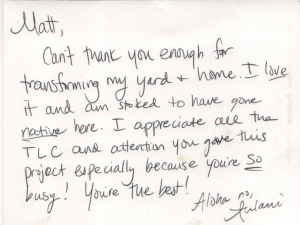 Matt,
Can't thank you enough for
transforming my yard + home. I love
it and am stoked to have gone
native here. I appreciate all the
TLC and attention you gave this
project especially because you're so
busy! You're the best!
Aloha no,